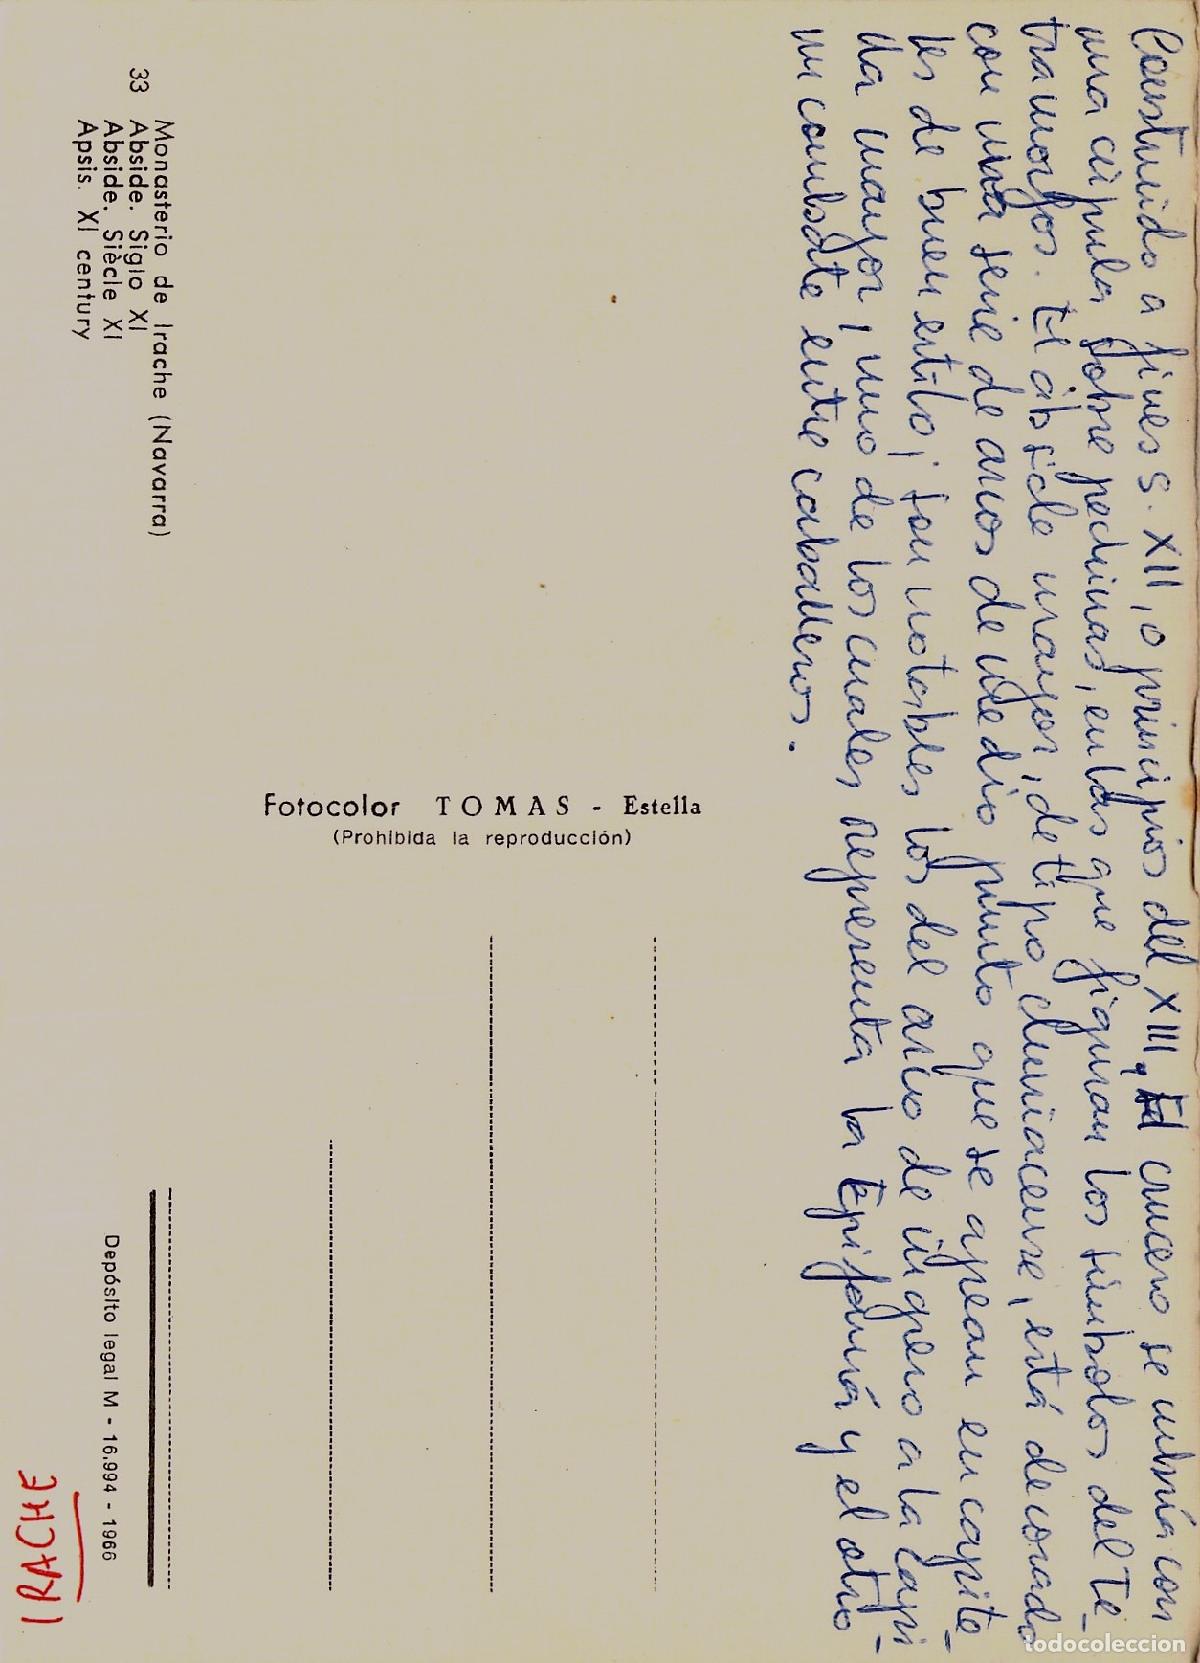 Construido a fines S. XII, o principios del XIII, El crucero se cubría con
una cúpula sobre pechinas, en las que figuran los símbolos del Te-
tramorfos. El ábside mayor, de tipo cluniacense, está decorado
con una serie de arcos de medio punto que se apean en capite-
les de buen estilo; son notables los del arco de ingreso a la capi-
lla mayor, uno de los cuales representa la Epifanía y el otro
un combate entre caballeros.
33 Monasterio de Irache (Navarra)
Abside. Siglo XI
Abside. Siècle XI
Apsis. XI century
Fotocolor TOMAS - Estella
(Prohibida la reproducción)
Depósito legal M - 16.994 - 1966
IRACHE
todocoleccion